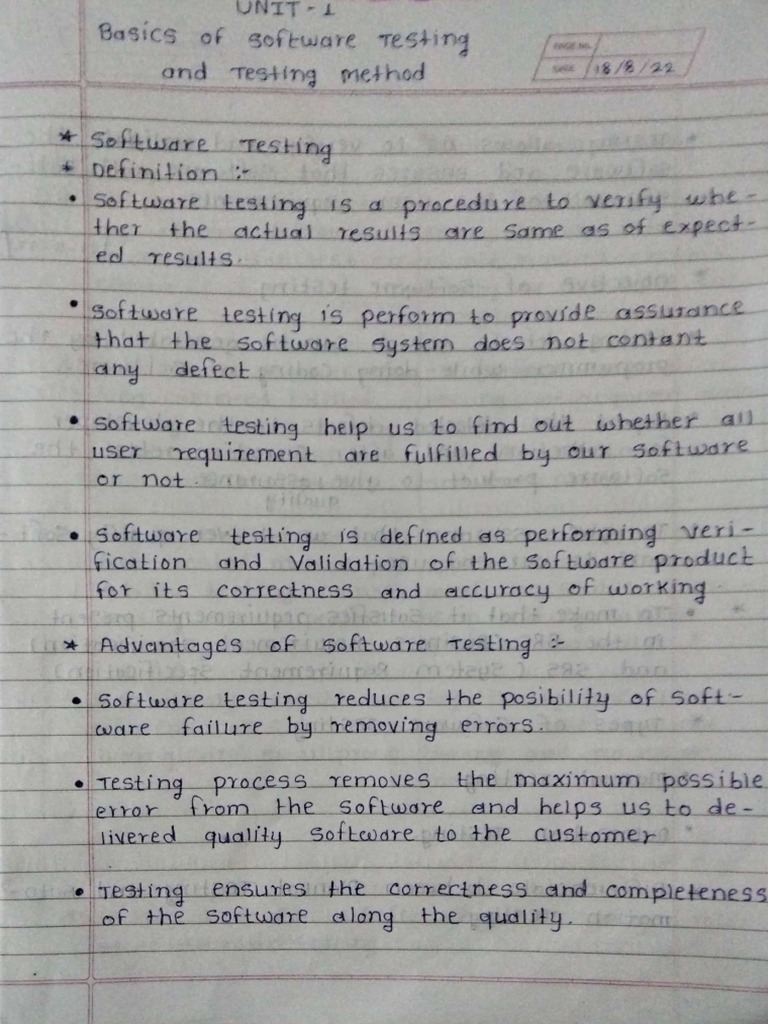 UNIT - 1
Basics of Software Testing
and Testing method
PAGE NO.
DATE 18/8/22
* Software Testing
* Definition :-
• Software testing is a procedure to verify whe-
ther the actual results are same as of expect-
ed results.
• Software testing is perform to provide assurance
that the software system does not contant
any defect
• Software testing help us to find out whether all
user requirement are fulfilled by our software
or not.
• Software testing is defined as performing veri-
fication and Validation of the software product
for its correctness and accuracy of working
* Advantages of Software Testing :-
• Software testing reduces the posibility of soft-
ware failure by removing errors.
• Testing process removes the maximum possible
error from the software and helps us to de-
livered quality software to the customer
• Testing ensures the correctness and completeness
of the software along the quality.